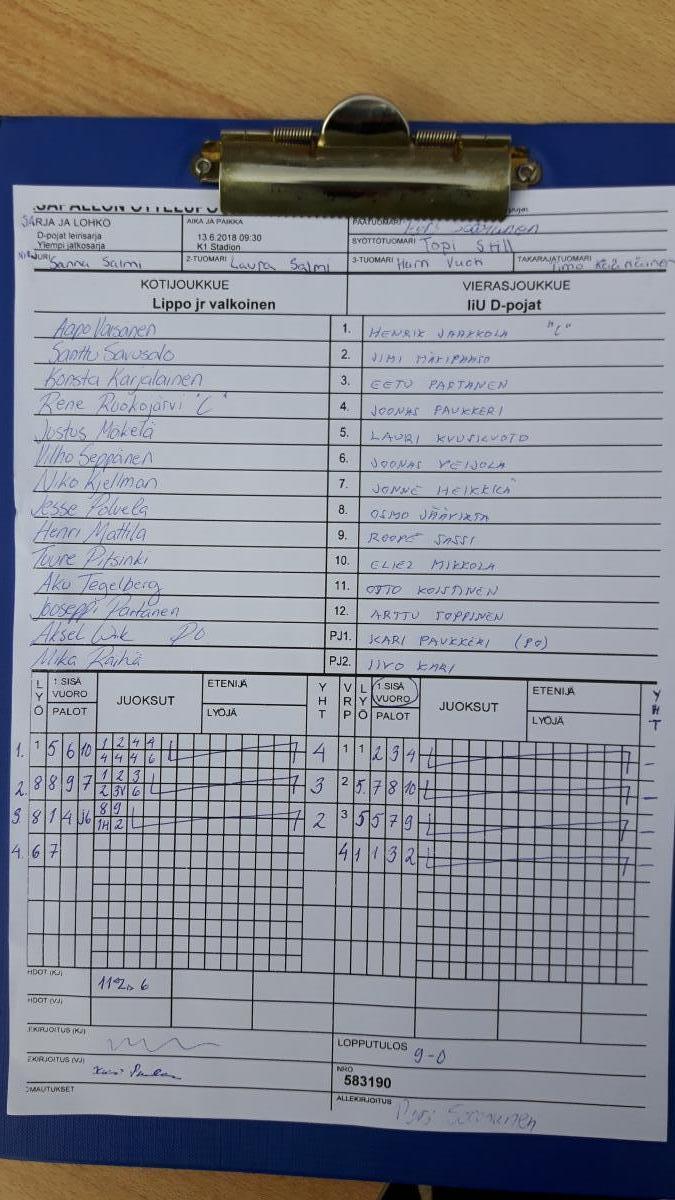 SARJA JA LOHKO
D-pojat leirisarja
Ylempi jatkosarja
AIKA JA PAIKKA
13.6.2018 09:30
K1 Stadion
PÄÄTUOMARI
SYÖTTÖTUOMARI Topi Still
Sanna Salmi
2-TUOMARI Laura Salmi
3-TUOMARI Harri Vuch
TAKARAJATUOMARI Timo
KOTIJOUKKUE
Lippo jr valkoinen
VIERASJOUKKUE
IiU D-pojat
Aapo Väisänen 1. HENRIK JAAKKOLA "C"
Santtu Savusalo 2. JIMI MÄKIPAASO
Konsta Karjalainen 3. EETU PARTANEN
Rene Ruokojärvi "C" 4. JOONAS PAUKKERI
Justus Mäkelä 5. LAURI
Vilho Seppänen 6. JOONAS VEIJOLA
Niko Kjellman 7. JONNE HEIKKILÄ
Jesse Polvela 8. OSMO
Henri Mattila 9. ROOPE SASSI
Tuure Pitsinki 10. ELIEL MIKKOLA
Aku Tegelberg 11. OTTO KOISTINEN
Jooseppi Partanen 12. ARTTU TOPPINEN
Aksel Wik PJ1. KARI PAUKKERI (PO)
Mika Räihä PJ2. IIVO KARI
LYÖ 1.SISÄ VUORO PALOT JUOKSUT ETENIJÄ LYÖJÄ YHT VRP LYÖ 1.SISÄ VUORO PALOT JUOKSUT ETENIJÄ LYÖJÄ YHT
1. 1 5 6 10 1 2 4 4 4 1 1 2 3 4 -
4 4 4 6
2. 8 8 9 7 1 2 3 3 2 5 7 8 10 -
2 3V 6
3. 8 1 4 J6 8 9 2 3 5 5 7 9 -
1H 2
4. 6 7 4 1 1 3 2 -
HDOT (KJ)
HDOT (VJ)
EKIRJOITUS (KJ)
LOPPUTULOS 9-0
EKIRJOITUS (VJ)
NRO
583190
ALLEKIRJOITUS